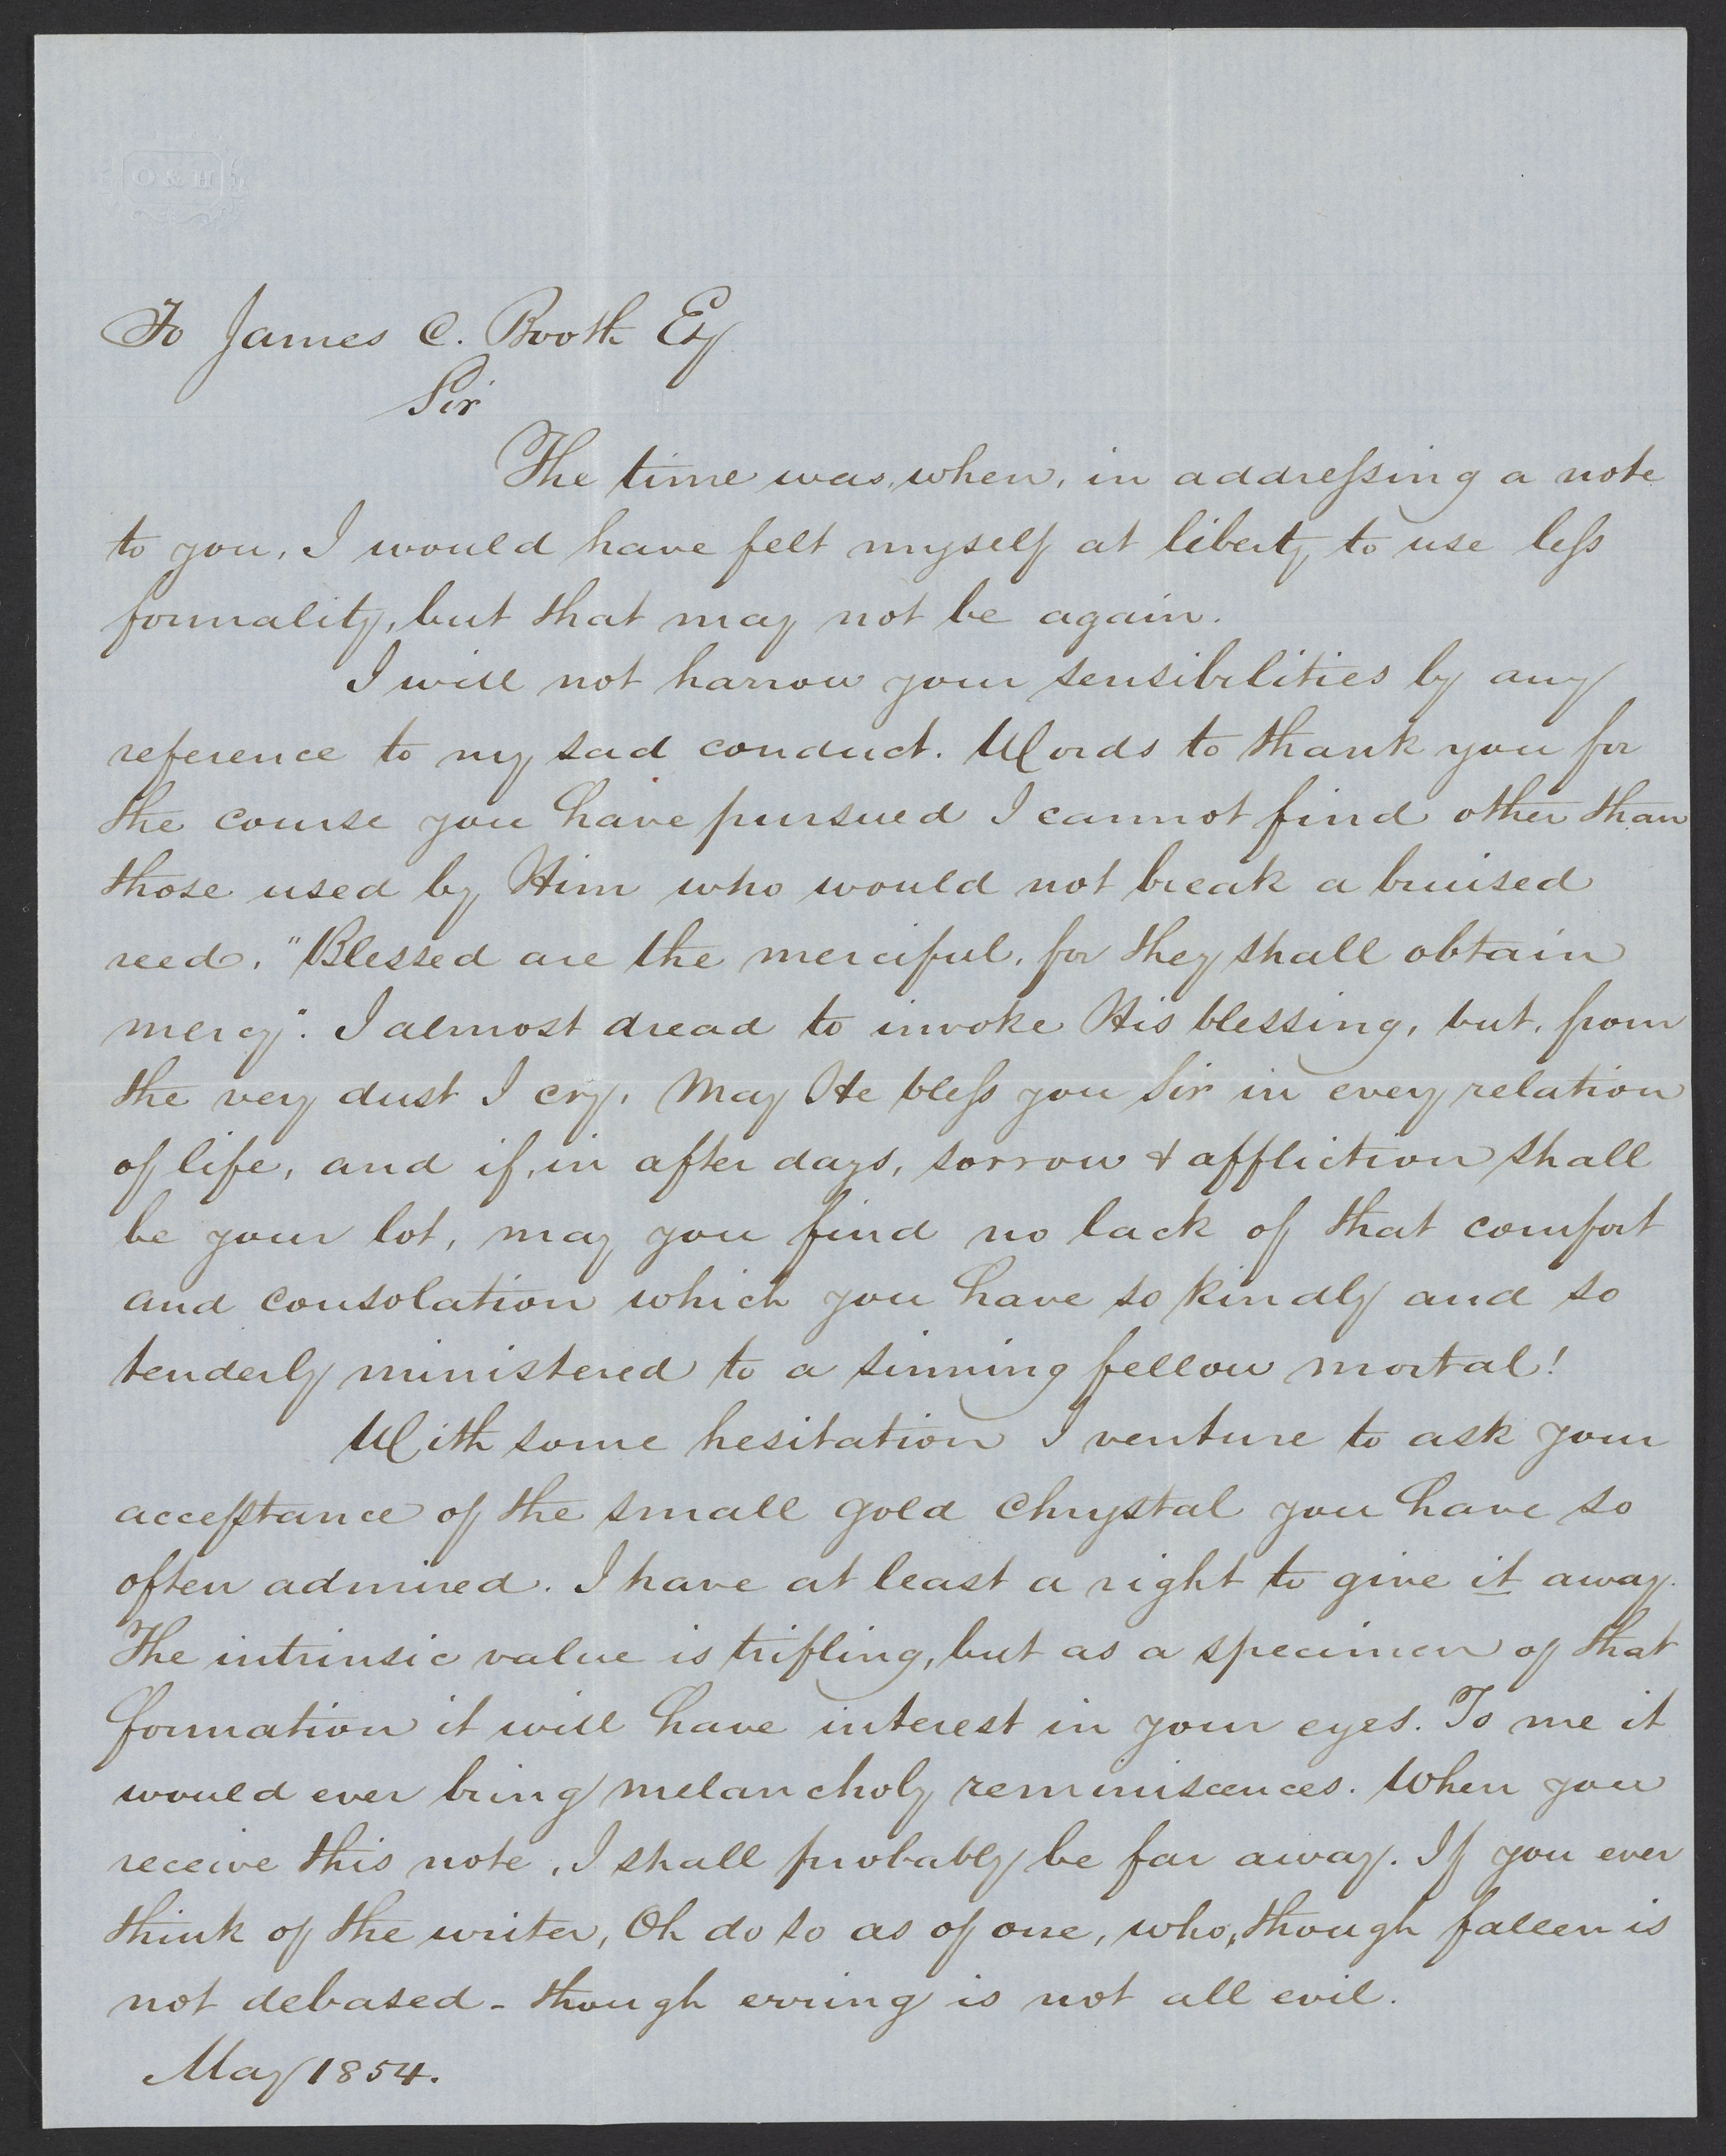 O & H
To James C. Booth Esq
Sir
The time was, when, in addreſsing a note
to you, I would have felt myself at liberty to use leſs
formality, but that may not be again.
I will not harrow your sensibilities by any
reference to my sad conduct. Words to thank you for
the course you have pursued I cannot find other than
those used by Him who would not break a bruised
reed, "Blessed are the merciful, for they shall obtain
mercy". I almost dread to invoke His blessing, but, from
the very dust I cry, May He bleſs you Sir in every relation
of life, and if, in after days, sorrow & affliction shall
be your lot, may you find no lack of that comfort
and consolation which you have so kindly and so
tenderly ministered to a sinning fellow mortal!
With some hesitation I venture to ask your
acceptance of the small gold chrystal you have so
often admired. I have at least a right to give it away.
The intrinsic value is trifling, but as a specimen of that
formation it will have interest in your eyes. To me it
would ever bring melancholy reminiscences. When you
receive this note, I shall probably be far away. If you ever
think of the writer, Oh do so as of one, who, though fallen is
not debased - though erring is not all evil.
May 1854.